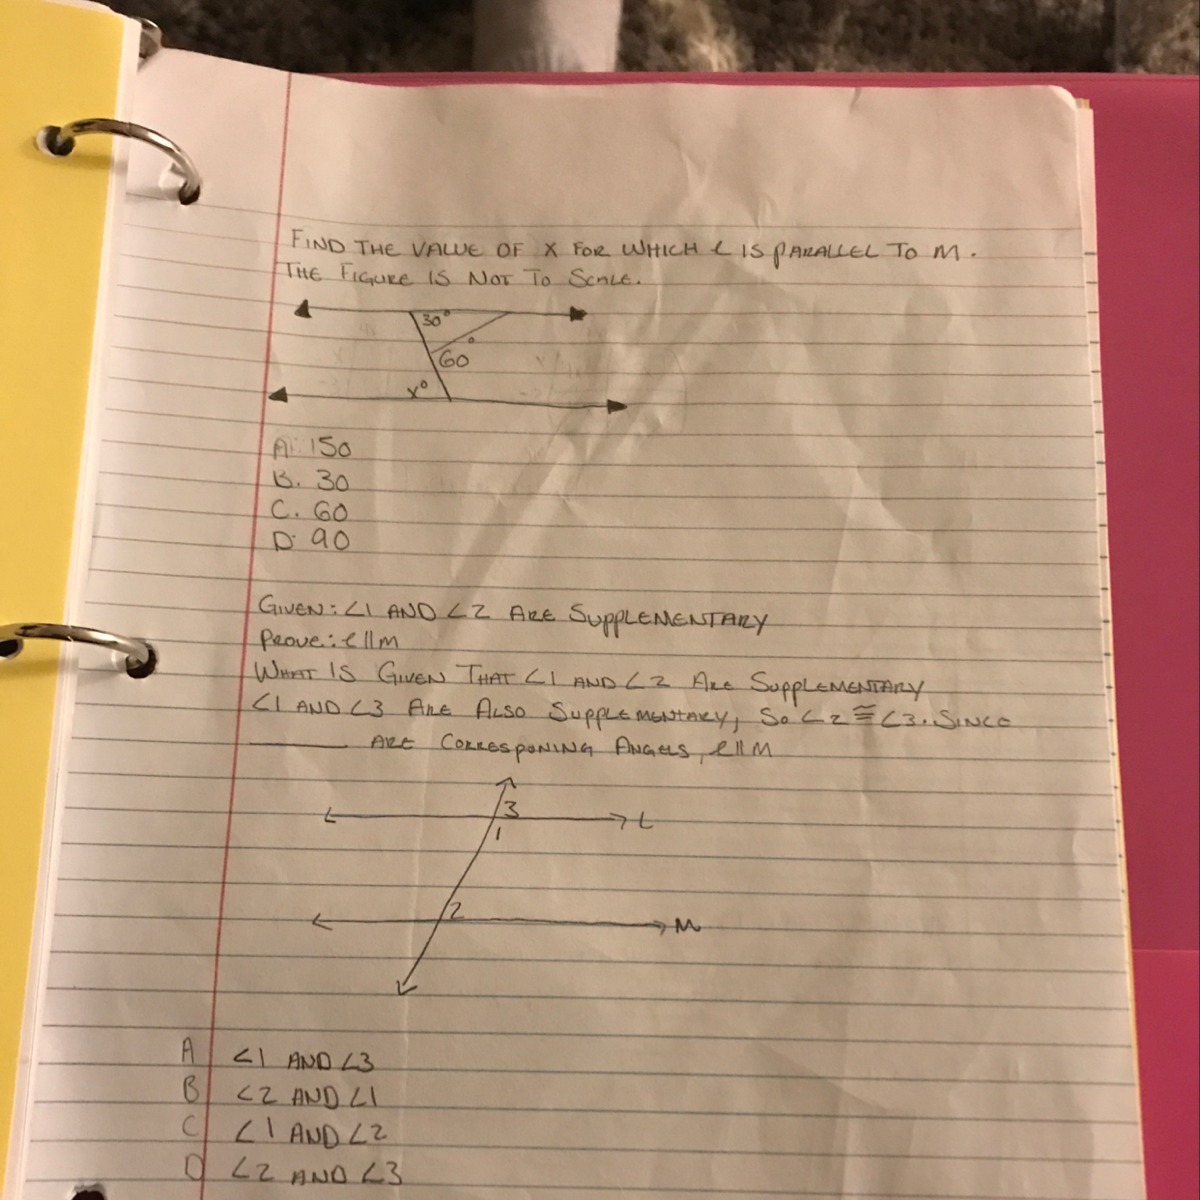 FIND THE VALUE OF X FOR WHICH ℓ IS PARALLEL TO M.
THE FIGURE IS NOT TO SCALE.
30°
60°
x°
A. 150
B. 30
C. 60
D. 90
GIVEN: ∠1 AND ∠2 ARE SUPPLEMENTARY
PROVE: ℓ || M
WHAT IS GIVEN THAT ∠1 AND ∠2 ARE SUPPLEMENTARY
∠1 AND ∠3 ARE ALSO SUPPLEMENTARY, SO ∠2 ≅ ∠3. SINCE
______ ARE CORRESPONING ANGELS, ℓ || M
3
L
1
2
M
A ∠1 AND ∠3
B ∠2 AND ∠1
C ∠1 AND ∠2
D ∠2 AND ∠3